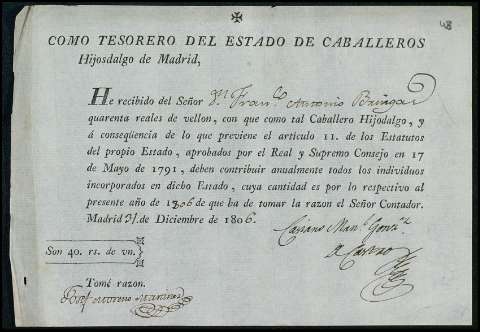 COMO TESORERO DEL ESTADO DE CABALLEROS
Hijosdalgo de Madrid,
He recibido del Señor Dn. Franco. Antonio Bringas
quarenta reales de vellon, con que como tal Caballero Hijodalgo, y
á conseqüencia de lo que previene el artículo 11. de los Estatutos
del propio Estado, aprobados por el Real y Supremo Consejo en 17
de Mayo de 1791, deben contribuir anualmente todos los individuos
incorporados en dicho Estado, cuya cantidad es por lo respectivo al
presente año de 1806 de que ha de tomar la razon el Señor Contador.
Madrid 31. de Diciembre de 1806.
Son 40. rs. de vn.
Tomé razon.